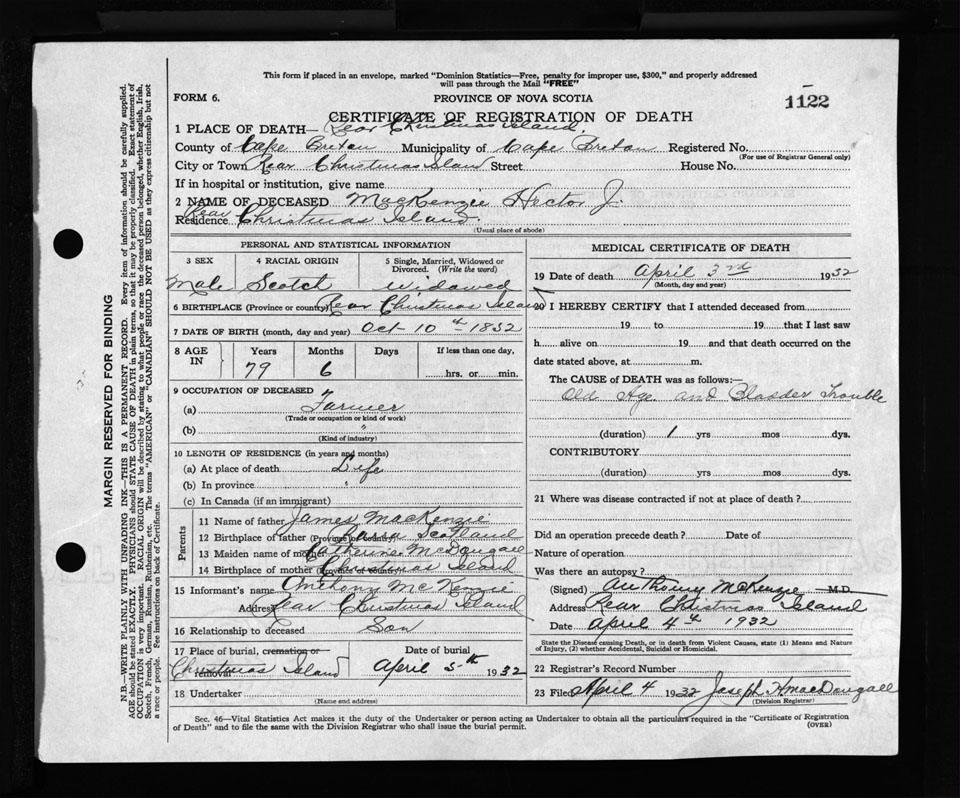 This form if placed in an envelope, marked "Dominion Statistics—Free, penalty for improper use, $300," and properly addressed
will pass through the Mail "FREE"
FORM 6. PROVINCE OF NOVA SCOTIA 1122
CERTIFICATE OF REGISTRATION OF DEATH
1 PLACE OF DEATH— Rear Christmas Island.
County of Cape Breton Municipality of Cape Breton Registered No.
(For use of Registrar General only)
City or Town Rear Christmas Island Street House No.
If in hospital or institution, give name
2 NAME OF DECEASED MacKenzie Hector J.
Residence Rear Christmas Island.
(Usual place of abode)
PERSONAL AND STATISTICAL INFORMATION
3 SEX 4 RACIAL ORIGIN 5 Single, Married, Widowed or Divorced. (Write the word)
Male Scotch widowed
6 BIRTHPLACE (Province or country) Rear Christmas Island
7 DATE OF BIRTH (month, day and year) Oct 10th 1832
8 AGE IN Years Months Days If less than one day,
79 6 hrs. or min.
9 OCCUPATION OF DECEASED
(a) Farmer
(Trade or occupation or kind of work)
(b) "
(Kind of industry)
10 LENGTH OF RESIDENCE (in years and months)
(a) At place of death Life
(b) In province "
(c) In Canada (if an immigrant)
Parents
11 Name of father James MacKenzie
12 Birthplace of father (Province or country) Scotland
13 Maiden name of mother Catherine McDougall
14 Birthplace of mother (Province or country) Christmas Island
15 Informant's name Anthony McKenzie
Address Rear Christmas Island
16 Relationship to deceased Son
17 Place of burial, cremation or removal Date of burial
Christmas Island April 5th 1932
18 Undertaker
(Name and address)
MEDICAL CERTIFICATE OF DEATH
19 Date of death April 3rd 1932
(Month, day and year)
20 I HEREBY CERTIFY that I attended deceased from
19 to 19 that I last saw
h alive on 19 and that death occurred on the
date stated above, at m.
The CAUSE of DEATH was as follows:—
Old Age and Bladder Trouble
(duration) 1 yrs mos dys.
CONTRIBUTORY
(duration) yrs mos dys.
21 Where was disease contracted if not at place of death?
Did an operation precede death? Date of
Nature of operation
Was there an autopsy?
(Signed) Anthony McKenzie M.D.
Address Rear Christmas Island
Date April 4th 1932
State the Disease causing Death, or in death from Violent Causes, state (1) Means and Nature of Injury, (2) whether Accidental, Suicidal or Homicidal.
22 Registrar's Record Number
23 Filed April 4 1932 Joseph H MacDougall
(Division Registrar)
Sec. 46—Vital Statistics Act makes it the duty of the Undertaker or person acting as Undertaker to obtain all the particulars required in the "Certificate of Registration
of Death" and to file the same with the Division Registrar who shall issue the burial permit. (OVER)
MARGIN RESERVED FOR BINDING
N.B.—WRITE PLAINLY WITH UNFADING INK—THIS IS A PERMANENT RECORD. Every item of information should be carefully supplied.
AGE should be stated EXACTLY. PHYSICIANS should STATE CAUSE OF DEATH in plain terms, so that it may be properly classified. Exact statement of
OCCUPATION is very important. RACIAL ORIGIN will be described by stating to what people or race the deceased person belonged, whether English, Irish,
Scotch, French, German, Russian, Ruthenian, etc. The terms "AMERICAN" or "CANADIAN" SHOULD NOT BE USED as they express citizenship but not
a race or people. See instructions on back of Certificate.